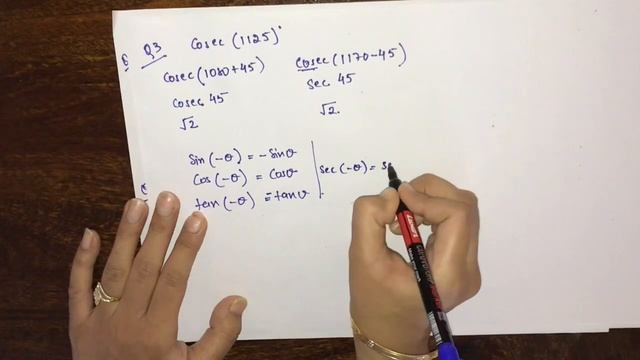 Q3 Cosec (1125)°
Cosec (1080+45)
Cosec 45
√2
Cosec (1170-45)
Sec 45
√2.
Sin (-θ) = -Sinθ
Cos (-θ) = Cosθ
tan (-θ) = -tanθ
Sec (-θ) = S